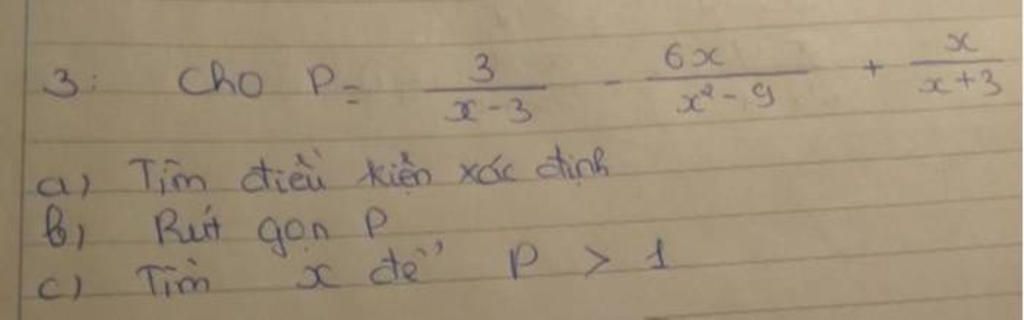 3: Cho P = \frac{3}{x-3} - \frac{6x}{x^2-9} + \frac{x}{x+3}
a) Tìm điều kiện xác định
b) Rút gọn P
c) Tìm x để P > 1